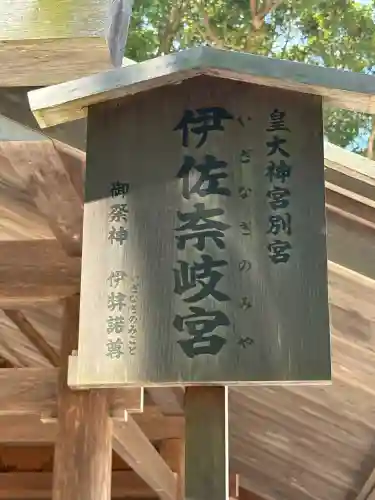 皇大神宮別宮
伊佐奈岐宮
いざなぎのみや
御祭神 伊弉諾尊
いざなぎのみこと